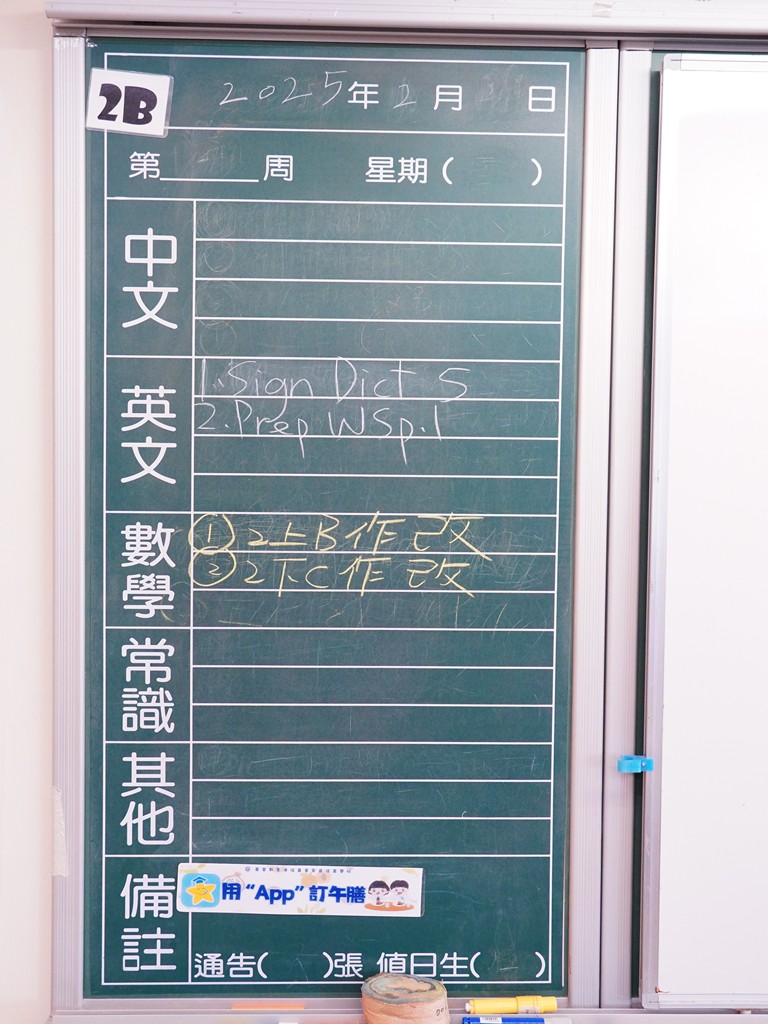 2B
2025年2月 日
第 周 星期( )
中文
英文
1.Sign Dict 5
2.Prep WSp.1
數學
①2上B作改
②2下C作改
常識
其他
備註
用“App”訂午膳
通告( )張 值日生( )